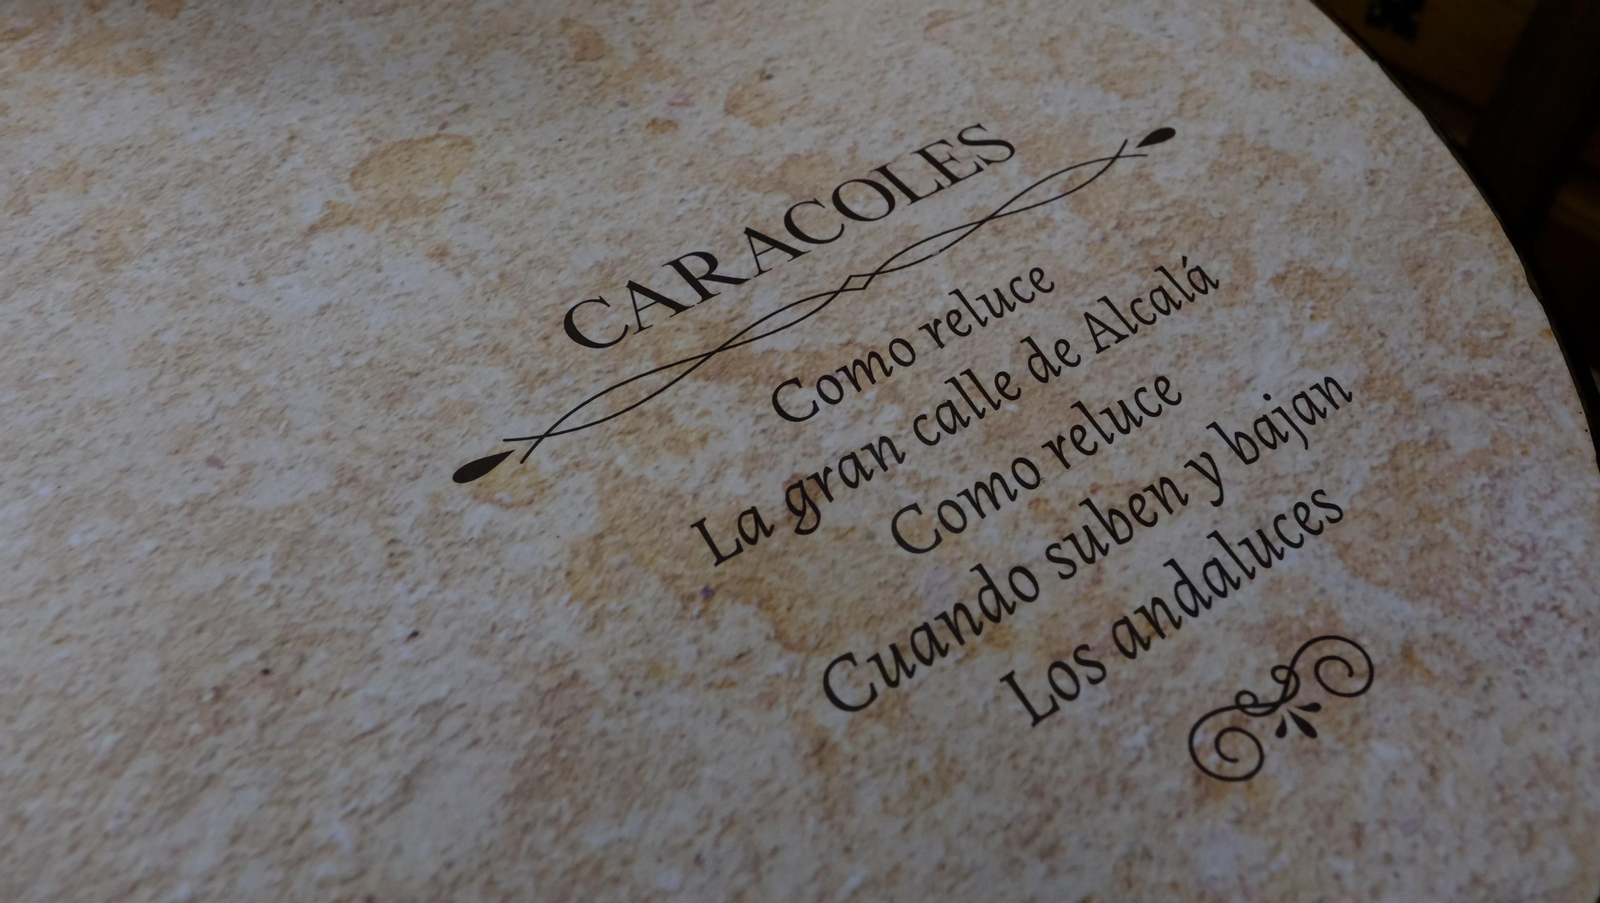 CARACOLES
Como reluce
La gran calle de Alcalá
Como reluce
Cuando suben y bajan
Los andaluces